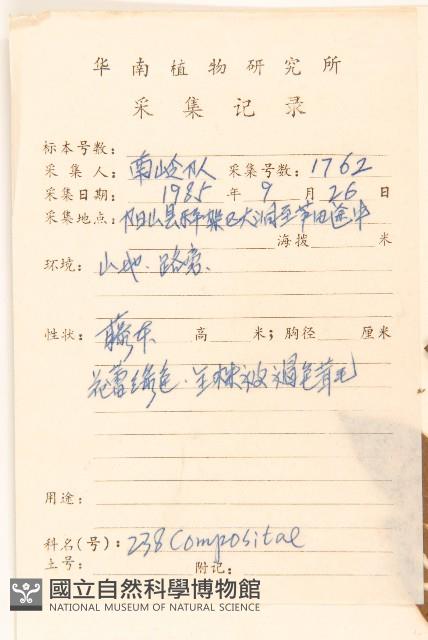 华南植物研究所
采集记录
标本号数：
采集人：南岭队 采集号数：1762
采集日期：1985年9月26日
采集地点：阳山县秤架区大洞至芋田途中
海拨 米
环境：山地．路旁．
性状：藤本 高 米；胸径 厘米
花蕾绿色．全株被褐色茸毛
用途：
科名(号)：238 Compositae
土号： 附记：
國立自然科學博物館
NATIONAL MUSEUM OF NATURAL SCIENCE